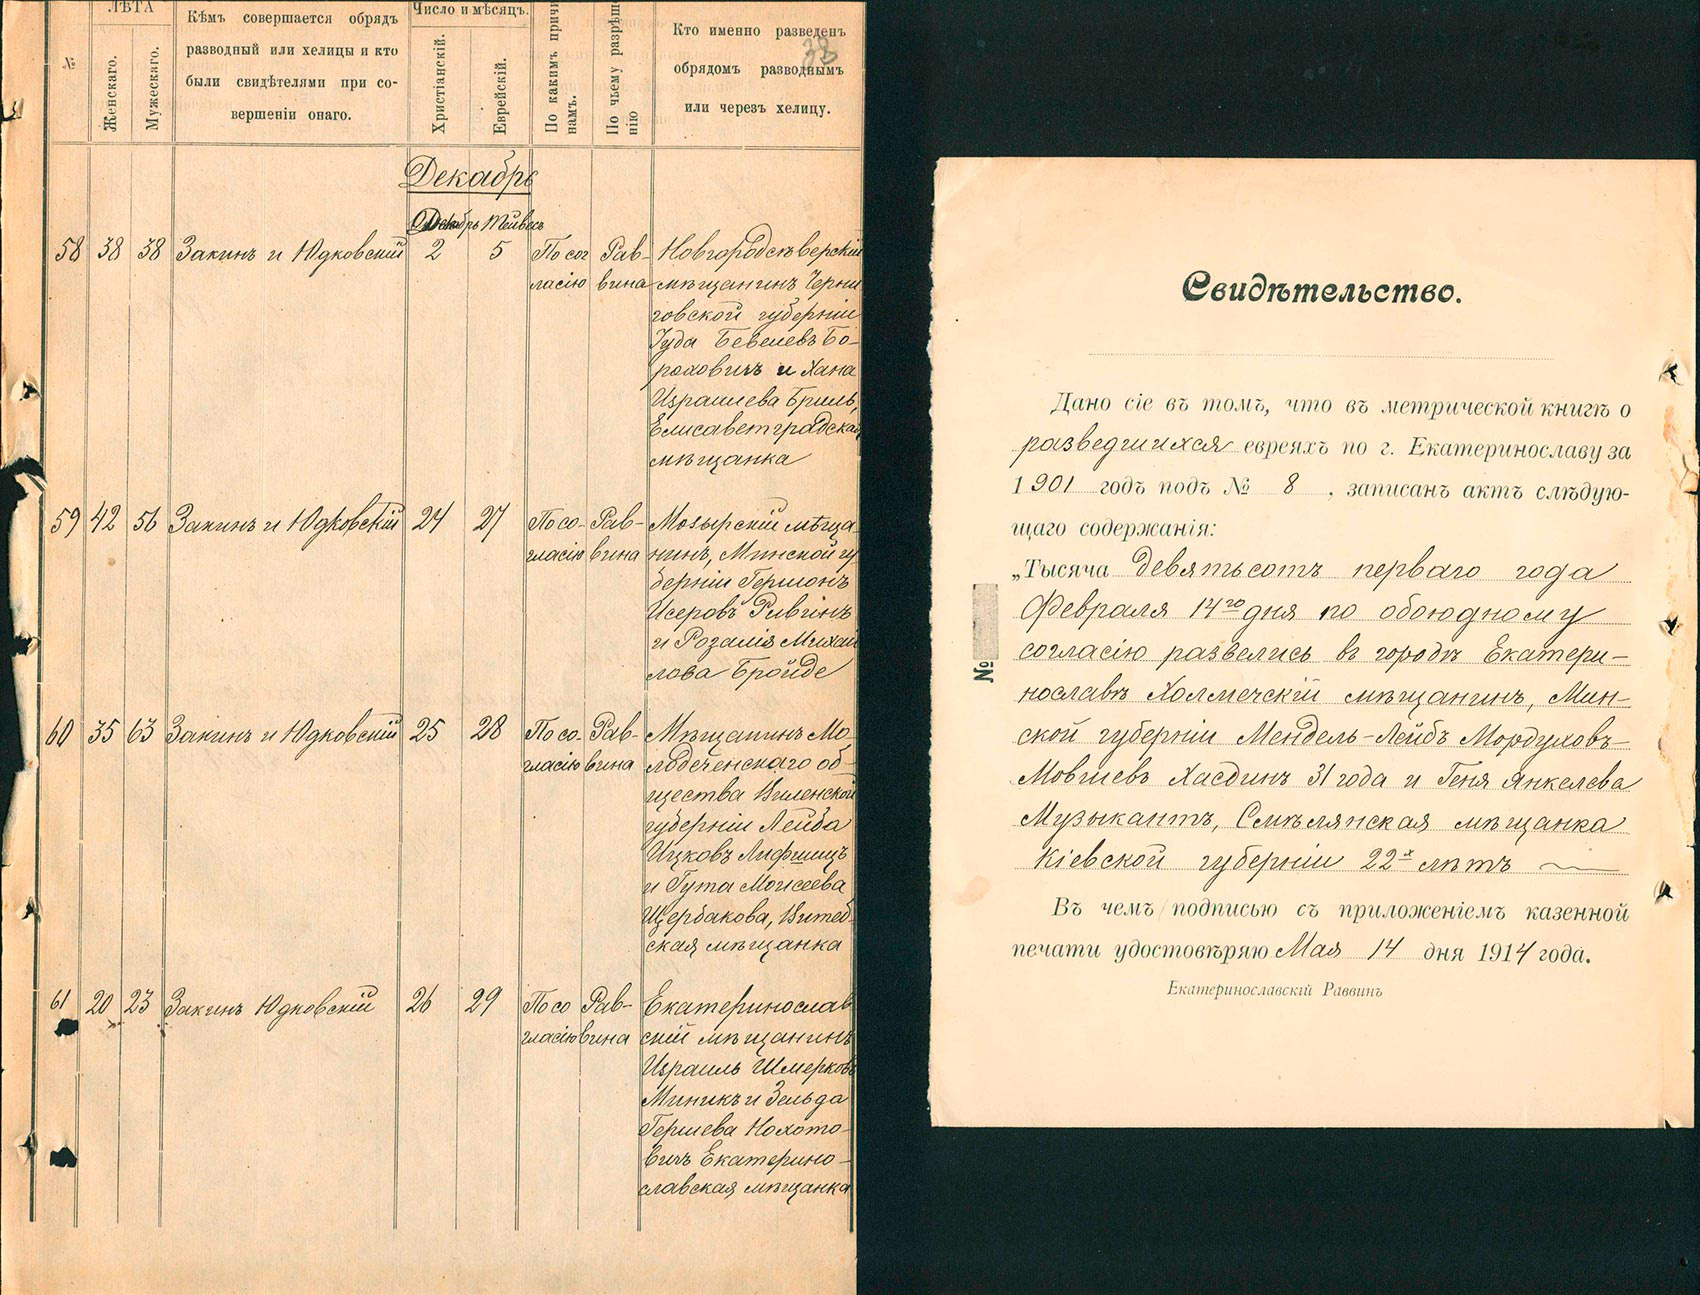 №
ЛѢТА
Женскаго.
Мужескаго.
Кѣмъ совершается обрядъ
разводный или хелицы и кто
были свидѣтелями при со-
вершеніи онаго.
Число и мѣсяцъ.
Христіанскій.
Еврейскій.
По какимъ причи
намъ.
По чьему разрѣше
нію
Кто именно разведенъ
обрядомъ разводнымъ
или черезъ хелицу.
38
Декабрь
Декабрь Тейвесъ
58 38 38 Закинъ и Юдковскій 2 5 По сог Рав- Новгородсѣверскій
ласію вина мѣщанинъ Черни
говской губерніи
Іуда Бевелевъ Бо-
роховичъ и Хана
Израилева Бриль,
Елисаветградская
мѣщанка
59 42 56 Закинъ и Юдковскій 24 27 По со- Рав- Мозырскій мѣща
гласію вина нинъ, Минской гу
берніи Гершонъ
Исеровъ Ривкинъ
и Розалія Михай
лова Бройде
60 35 63 Закинъ и Юдковскій 25 28 По со- Рав- Мѣщанинъ Мо-
гласію вина лодеченскаго об-
щества Виленской
губерніи Лейба
Ицковъ Лифшицъ
и Гута Моисеева
Щербакова, Витеб-
ская мѣщанка
61 20 23 Закинъ Юдковскій 26 29 По со Рав- Екатеринослав
гласію вина скій мѣщанинъ
Израиль Шмерковъ
Миникъ и Зельда
Гершева Нохото-
вичъ Екатерино-
славская мѣщанка
Свидѣтельство.
Дано сіе въ томъ, что въ метрической книгѣ о
разведшихся евреяхъ по г. Екатеринославу за
1901 годъ подъ № 8, записанъ актъ слѣдую-
щаго содержанія:
„Тысяча девятьсотъ перваго года
Февраля 14го дня по обоюдному
согласію развелись въ городѣ Екатери-
нославѣ Холмечскій мѣщанинъ, Мин-
ской губерніи Мендель-Лейбъ Мордуховъ-
Мовшевъ Хасдинъ 31 года и Геня Янкелева
Музыкантъ, Смѣлянская мѣщанка
Кіевской губерніи 22х лѣтъ
Въ чемъ подписью съ приложеніемъ казенной
печати удостовѣряю Мая 14 дня 1914 года.
Екатеринославскій Раввинъ
№